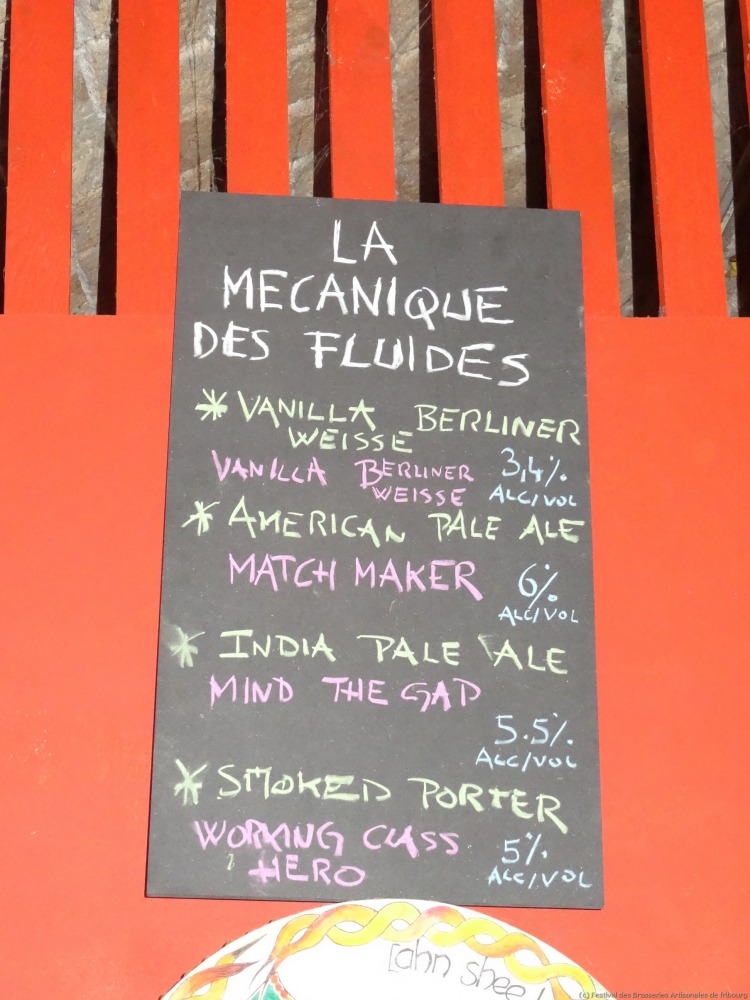 LA
MECANIQUE
DES FLUIDES
* VANILLA BERLINER
WEISSE
VANILLA BERLINER 3,4%
WEISSE ALC/VOL
* AMERICAN PALE ALE
MATCH MAKER 6%
ALC/VOL
* INDIA PALE ALE
MIND THE GAP
5.5%
ALC/VOL
* SMOKED PORTER
WORKING CLASS 5%
HERO ALC/VOL
(c) Festival des Brasseries Artisanales de fribourg